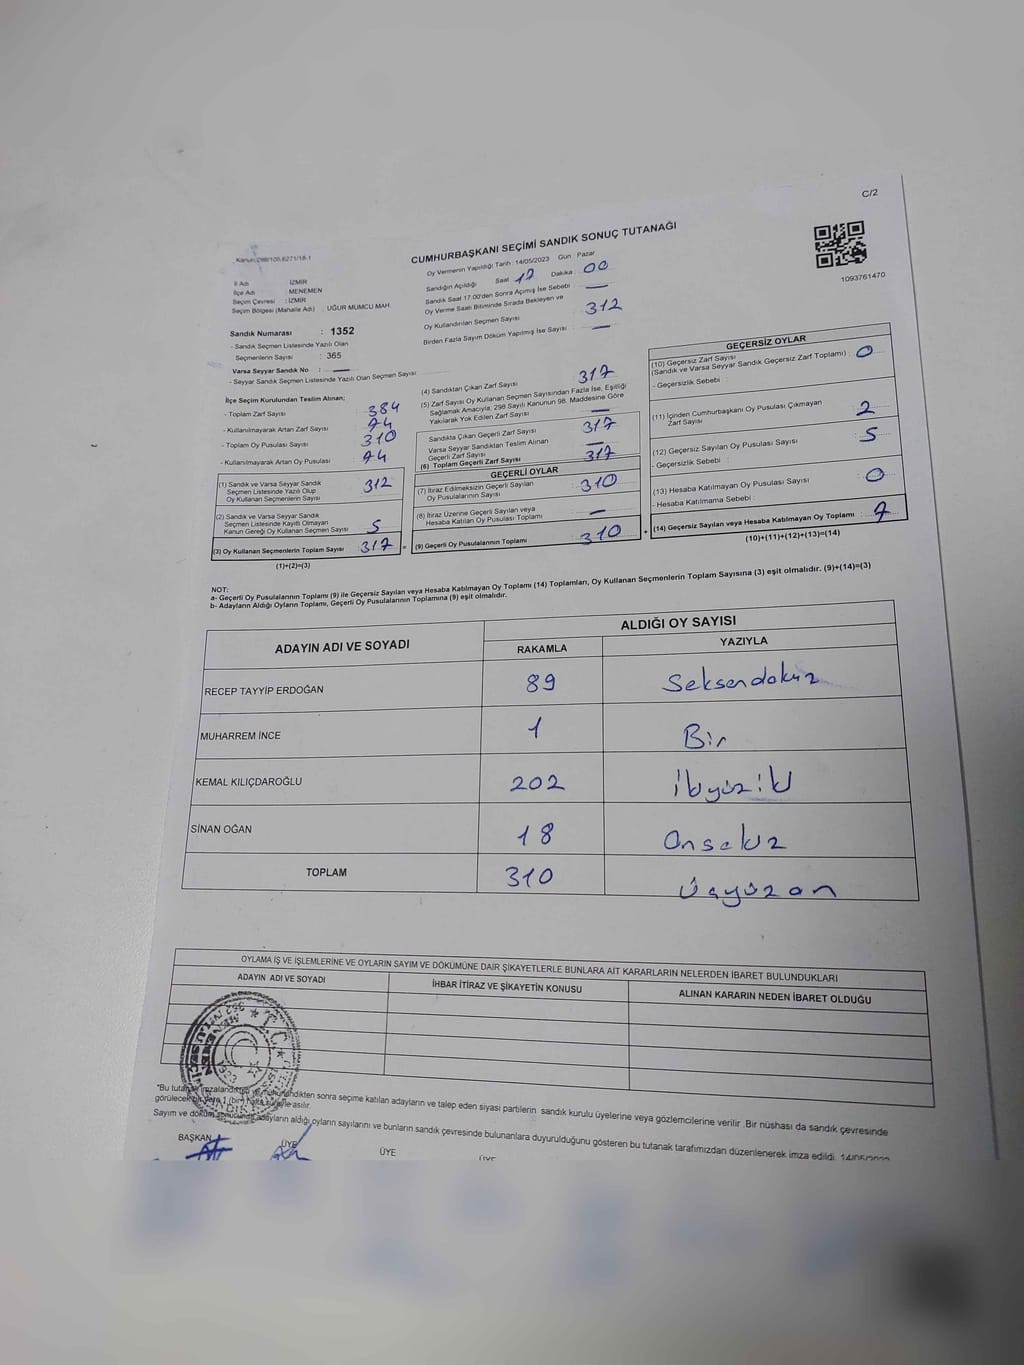 C/2
Kanun:298/105,6271/18-1
CUMHURBAŞKANI SEÇİMİ SANDIK SONUÇ TUTANAĞI
1093761470
İl Adı : İZMİR
İlçe Adı : MENEMEN
Seçim Çevresi : İZMİR
Seçim Bölgesi (Mahalle Adı) : UĞUR MUMCU MAH
Sandık Numarası : 1352
- Sandık Seçmen Listesinde Yazılı Olan
Seçmenlerin Sayısı : 365
Varsa Seyyar Sandık No : —
- Seyyar Sandık Seçmen Listesinde Yazılı Olan Seçmen Sayısı
Oy Vermenin Yapıldığı Tarih : 14/05/2023 Gün : Pazar
Sandığın Açıldığı Saat 17 Dakika : 00
Sandık Saat 17:00'den Sonra Açımış İse Sebebi : —
Oy Verme Saati Bitiminde Sırada Bekleyen ve
Oy Kullandırılan Seçmen Sayısı : 312
Birden Fazla Sayım Döküm Yapılmış İse Sayısı : —
İlçe Seçim Kurulundan Teslim Alınan;
- Toplam Zarf Sayısı : 384
- Kullanılmayarak Artan Zarf Sayısı : 74
- Toplam Oy Pusulası Sayısı : 310
- Kullanılmayarak Artan Oy Pusulası : 74
(1) Sandık ve Varsa Seyyar Sandık
Seçmen Listesinde Yazılı Olup
Oy Kullanan Seçmenlerin Sayısı : 312
(2) Sandık ve Varsa Seyyar Sandık
Seçmen Listesinde Kayıtlı Olmayan
Kanun Gereği Oy Kullanan Seçmen Sayısı : 5
(3) Oy Kullanan Seçmenlerin Toplam Sayısı : 317 =
(1)+(2)=(3)
(4) Sandıktan Çıkan Zarf Sayısı : 317
(5) Zarf Sayısı Oy Kullanan Seçmen Sayısından Fazla İse, Eşitliği
Sağlamak Amacıyla, 298 Sayılı Kanunun 98. Maddesine Göre
Yakılarak Yok Edilen Zarf Sayısı : —
Sandıkta Çıkan Geçerli Zarf Sayısı : 317
Varsa Seyyar Sandıktan Teslim Alınan
Geçerli Zarf Sayısı : —
(6) Toplam Geçerli Zarf Sayısı : 317
GEÇERLİ OYLAR
(7) İtiraz Edilmeksizin Geçerli Sayılan
Oy Pusulalarının Sayısı : 310
(8) İtiraz Üzerine Geçerli Sayılan veya
Hesaba Katılan Oy Pusulası Toplamı : —
(9) Geçerli Oy Pusulalarının Toplamı : 310 +
GEÇERSİZ OYLAR
(10) Geçersiz Zarf Sayısı
(Sandık ve Varsa Seyyar Sandık Geçersiz Zarf Toplamı) : 0
- Geçersizlik Sebebi :
(11) İçinden Cumhurbaşkanı Oy Pusulası Çıkmayan
Zarf Sayısı : 2
(12) Geçersiz Sayılan Oy Pusulası Sayısı : 5
- Geçersizlik Sebebi :
(13) Hesaba Katılmayan Oy Pusulası Sayısı : 0
- Hesaba Katılmama Sebebi :
(14) Geçersiz Sayılan veya Hesaba Katılmayan Oy Toplamı : 7
(10)+(11)+(12)+(13)=(14)
NOT:
a- Geçerli Oy Pusulalarının Toplamı (9) ile Geçersiz Sayılan veya Hesaba Katılmayan Oy Toplamı (14) Toplamları, Oy Kullanan Seçmenlerin Toplam Sayısına (3) eşit olmalıdır. (9)+(14)=(3)
b- Adayların Aldığı Oyların Toplamı, Geçerli Oy Pusulalarının Toplamına (9) eşit olmalıdır.
ADAYIN ADI VE SOYADI
ALDIĞI OY SAYISI
RAKAMLA YAZIYLA
RECEP TAYYİP ERDOĞAN 89 Seksendokuz
MUHARREM İNCE 1 Bir
KEMAL KILIÇDAROĞLU 202 ikiyüziki
SİNAN OĞAN 18 Onsekiz
TOPLAM 310 Üçyüzon
OYLAMA İŞ VE İŞLEMLERİNE VE OYLARIN SAYIM VE DÖKÜMÜNE DAİR ŞİKAYETLERLE BUNLARA AİT KARARLARIN NELERDEN İBARET BULUNDUKLARI
ADAYIN ADI VE SOYADI İHBAR İTİRAZ VE ŞİKAYETİN KONUSU ALINAN KARARIN NEDEN İBARET OLDUĞU
T.C.
*Bu tutanak imzalandıktan ve mühürlendikten sonra seçime katılan adayların ve talep eden siyasi partilerin sandık kurulu üyelerine veya gözlemcilerine verilir .Bir nüshası da sandık çevresinde
görülecek bir yere 1 (bir) hafta süreyle asılır.
Sayım ve döküm sonucunda adayların aldığı oyların sayılarını ve bunların sandık çevresinde bulunanlara duyurulduğunu gösteren bu tutanak tarafımızdan düzenlenerek imza edildi. 14/05/2023
BAŞKAN ÜYE ÜYE ÜYE